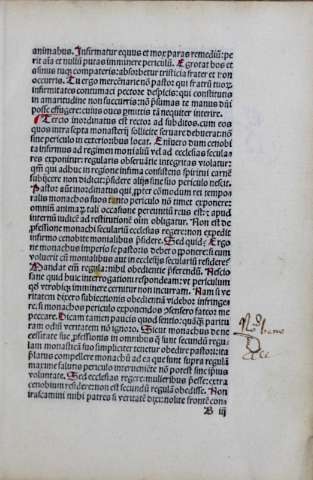 animabus. Infirmatur equus et mox paras remediũ: pe
rit aĩa et nullũ putas imminere periculũ. Egrotat bos et
asinus tuꝰ comparatis: absorbetur tristicia frater et non
occurris. Tu ergo mercẽnarie nõ pastor qui fratrũ tuoꝝ
infirmitates contumaci pectore despicis: qui constitutis
in amaritudine non succurris: nõ p̃sumas te manus dñi
posse effugere: cuius oues p̃mittis tã nequiter interire.
Tercio inordinatus est rector ad subditos. cum eos
quos intra septa monasterij sollicite seruare debuerat: nõ
sine periculo in exterioribus locat. Eniuero dum cenobi
ta infirmus ad regimen monialiũ vel ad ecclesias secula
res exponitur: regularis obseruãtie integritas violatur:
qm̃ qui adhuc in regione infima consistens spiritui carnẽ
subijcere non didicit: p̃sidere alijs sine suo periculo nescit.
Pastor aũt inordinatus qui, ꝓpter cõmodum rei tempo
ralis monachos suos tanto periculo nõ timet exponere:
omniũ animaꝝ tali occasione pereuntiũ reus est: apud
internũ iudicẽ ad restitutionẽ oim̃ obligatur. Non est de
ꝓfessione monachi secularis ecclesias regere: non expedit
infirmo cenobite monialibus p̃sidere. Sed quid? Ergo
ne monachus imperio se pastoris debet opponere: si eum
voluerit cũ monialibus aut in ecclesijs secularib̃ residere?
Mandat em̃ regula: nihil obedientie p̃ferendũ. Nescio
sane quid huic interrogationi respondeam: vt periculum
qd̃ verobiꝗ imminere cernitur non incurram. Nam si ve
ritatem dixero subiectionis obedientiã videbor infringe
re: si monachos periculo exponendos censero fateor me
peccare. Dicam tamen paucis quod sentio: quãꝗ̃ pariat
ram odiũ veritatem nõ ignoro. Sicut monachus de ne
cessitate sue ꝓfessionis in omnibus q̃ sunt secundũ regu
lam monasticã suo simpliciter tenetur obedire pastori: ita
p̃latus compellere monachũ ad ea que sunt supra regulã
maxime salutis periculo interueniẽte nõ potest sine ipsius
voluntate. Sed ecclesias regere: mulieribus p̃esse: extra
cenobium residere: non est secundũ regulã obedisse. Non
irascamini mihi patres si veritatẽ dixe: nolite frontẽ con
B iij